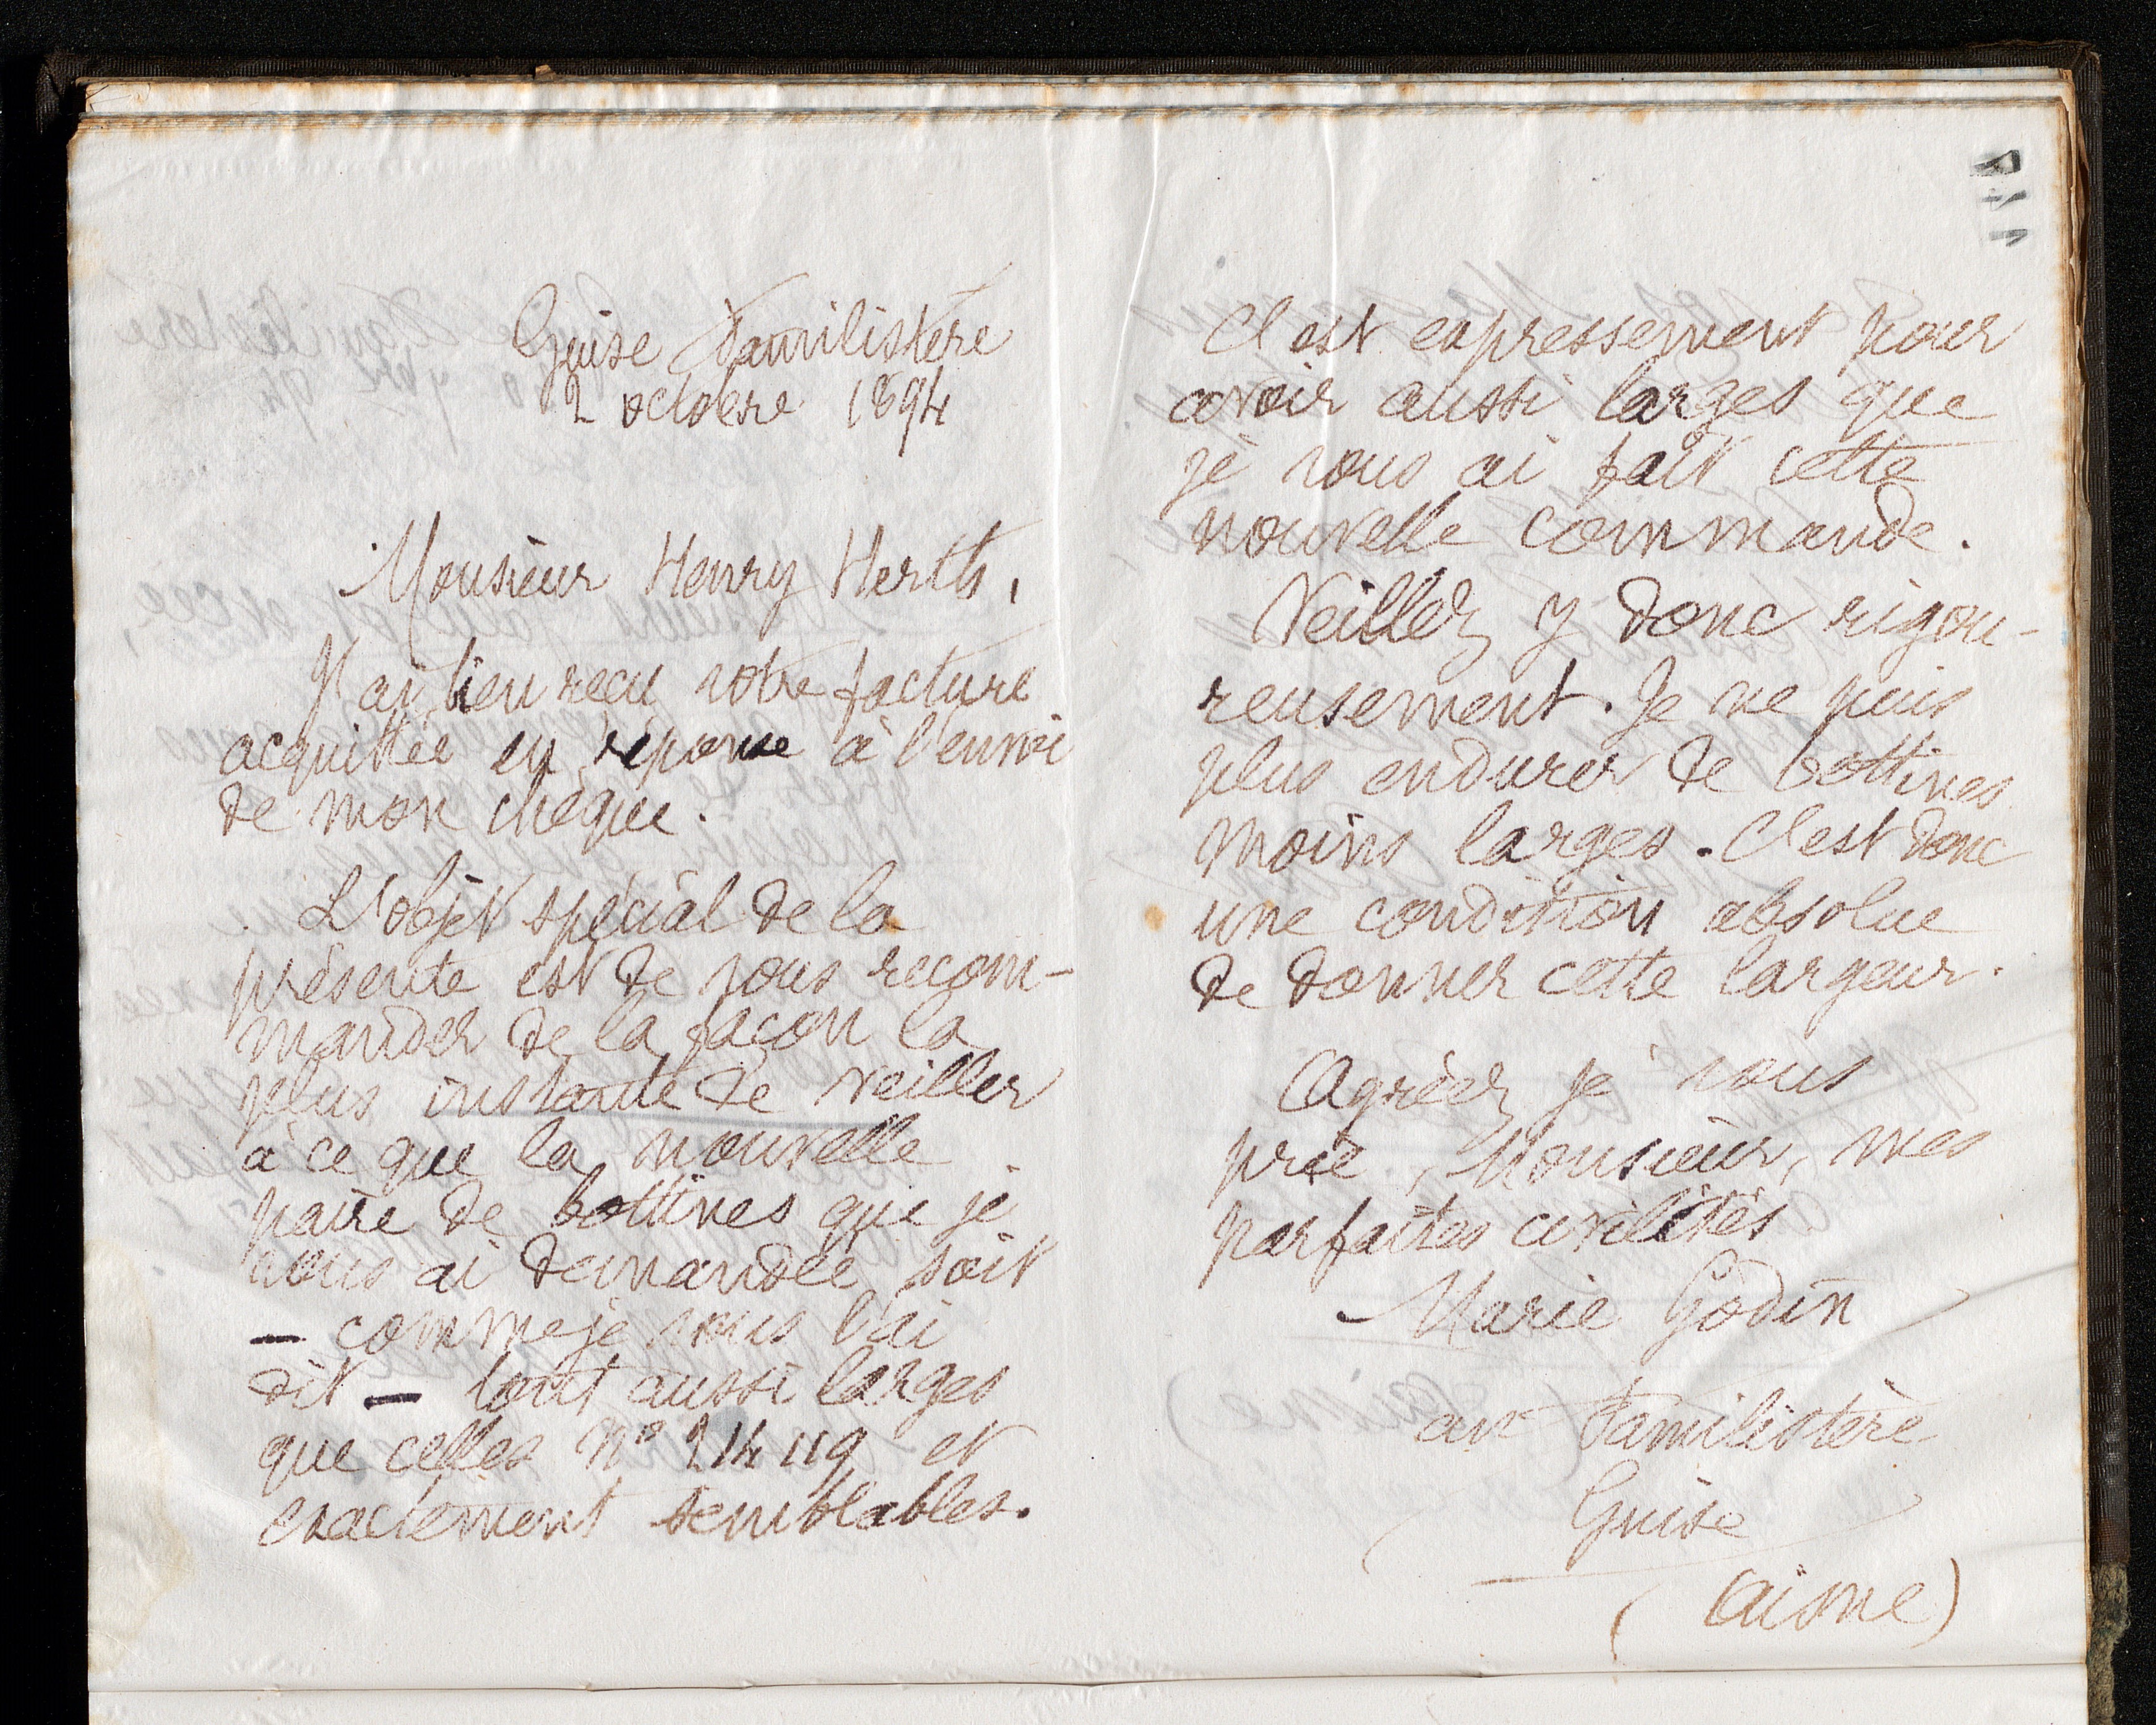 Guise Familistère
2 octobre 1894
Monsieur Henry Herth,
J'ai bien reçu votre facture
acquittée en réponse à l'envoi
de mon chèque.
L'objet spécial de la
présente est de vous recom-
mander de la façon la
plus instante de veiller
à ce que la nouvelle
paire de bottines que je
vous ai demandée soit
— comme je vous l'ai
dit — tout aussi larges
que celles No 214119 et
exactement semblables.
C'est expressément pour
avoir aussi larges que
je vous ai fait cette
nouvelle commande.
Veillez y donc rigou-
reusement. Je ne puis
plus endurer de bottines
moins larges. C'est donc
une condition absolue
de donner cette largeur.
Agréez je vous
prie, Monsieur, mes
parfaites civilités
Marie Godin
au Familistère
Guise
(Aisne)